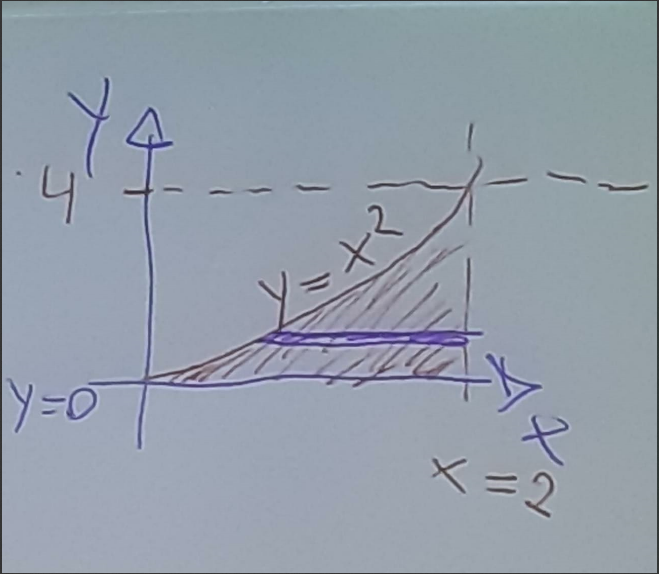 Y
4
y = x²
y=0
X
x = 2